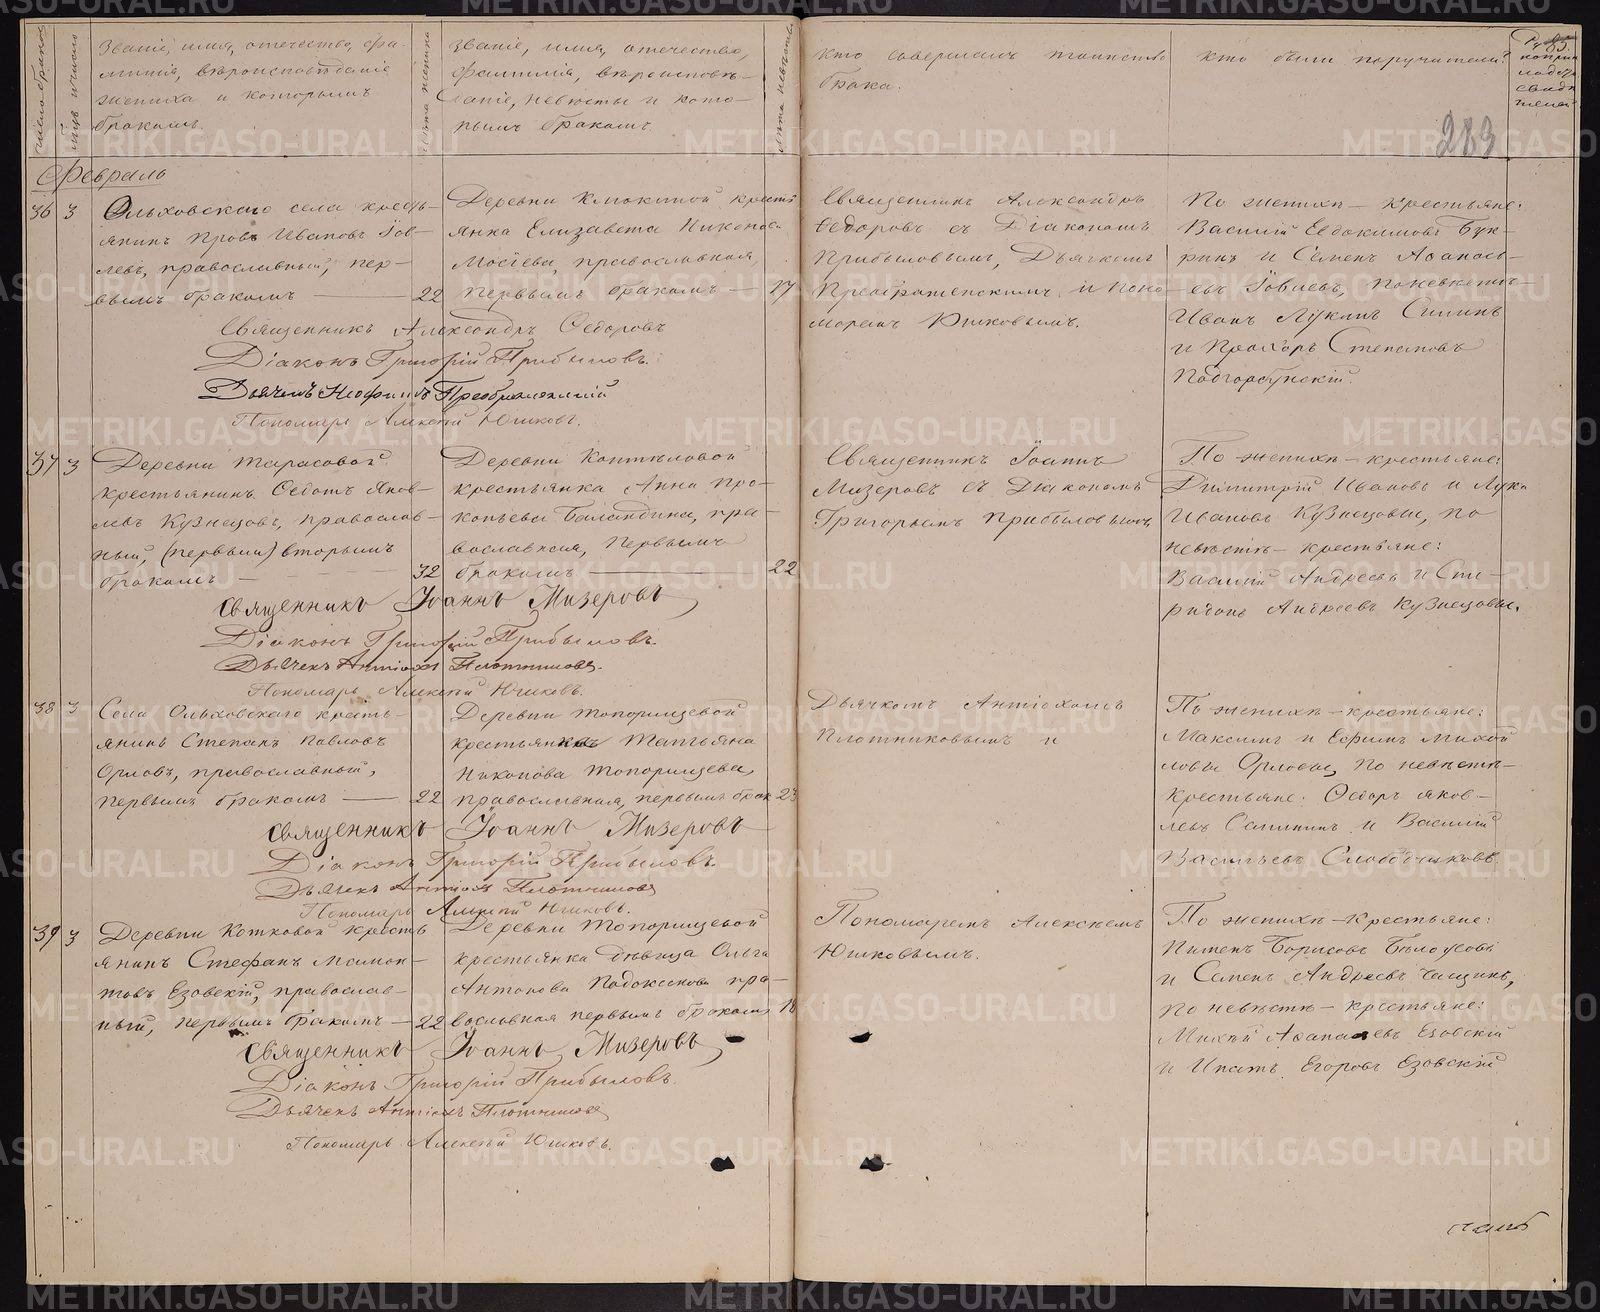 Званіе, имя, отечество, фа-
милія, вѣроисповѣданіе
жениха и которымъ
бракомъ.
Званіе, имя, отечество,
фамилія, вѣроисповѣ-
даніе, невѣсты и кото-
рымъ бракомъ.
Кто совершалъ таинство
брака.
Кто были поручители?
283
Февраль
36 3 Ольховскаго села кресть-
янинъ Провъ Ивановъ
левъ, православный, пер-
вымъ бракомъ — 22
Деревни крестъ
янка Елизавета Никонова
православная,
первымъ бракомъ — 17
Священникъ Александръ
Ѳедоровъ съ Діакономъ
Прибыловымъ, Дьячкомъ
Преображенскимъ и Поно
маремъ Юшковымъ.
По женихѣ — крестьяне:
Василій Евдокимовъ
и Семенъ Аѳанась-
евъ по невѣстѣ —
Иванъ Лукинъ
и Прохоръ Степановъ
Священникъ Александръ Ѳедоровъ
Діаконъ Григорій Прибыловъ.
Дьячекъ Преображенскій
Пономарь Алексѣй Юшковъ.
37 3 Деревни Тарасовой
крестьянинъ Ѳедотъ Яков-
левъ Кузнецовъ, православ-
ный, (первымъ) вторымъ
бракомъ — 32
Деревни
крестьянка Анна Про-
копьева Баландина, пра-
вославная, первымъ
бракомъ — 22
Священникъ Іоаннъ
Мизеровъ съ Діакономъ
Григорьемъ Прибыловымъ,
По женихѣ — крестьяне:
Димитрій Ивановъ и Лука
Ивановъ Кузнецовы, по
невѣстѣ — крестьяне:
Василій Андреевъ и Спи-
ридонъ Андреевъ Кузнецовы.
Священникъ Іоаннъ Мизеровъ
Діаконъ Григорій Прибыловъ.
Дьячекъ Антіохъ Плотниковъ.
Пономарь Алексѣй Юшковъ.
38 3 Села Ольховскаго кресть-
янинъ Степанъ Павловъ
Орловъ, православный,
первымъ бракомъ — 22
Деревни Топорищевой
крестьянка Татьяна
Никонова Топорищева,
православная, первымъ брак 23
Дьячкомъ Антіохомъ
Плотниковымъ и
По женихѣ — крестьяне:
Максимъ и Ефимъ Михай
ловы Орловы, по невѣстѣ —
крестьяне: Ѳедоръ Яков-
левъ и Василій
Васильевъ Слободчиковъ.
Священникъ Іоаннъ Мизеровъ
Діаконъ Григорій Прибыловъ.
Дьячекъ Антіохъ Плотниковъ
Пономарь Алексѣй Юшковъ.
39 3 Деревни Котковой кресть
янинъ Стефанъ Мамон-
товъ Езовскій, православ-
ный, первымъ бракомъ — 22
Деревни Топорищевой
крестьянка дѣвица Ольга
Антонова пра-
вославная первымъ бракомъ 18
Пономаремъ Алексѣемъ
Юшковымъ.
По женихѣ — крестьяне:
Пименъ Борисовъ Бѣлоусовъ
и Семенъ Андреевъ
по невѣстѣ — крестьяне:
Аѳанасьевъ Езовскій
и Ипатъ Егоровъ Езовскій
Священникъ Іоаннъ Мизеровъ
Діаконъ Григорій Прибыловъ.
Дьячекъ Антіохъ Плотниковъ
Пономарь Алексѣй Юшковъ.
METRIKI.GASO-URAL.RU